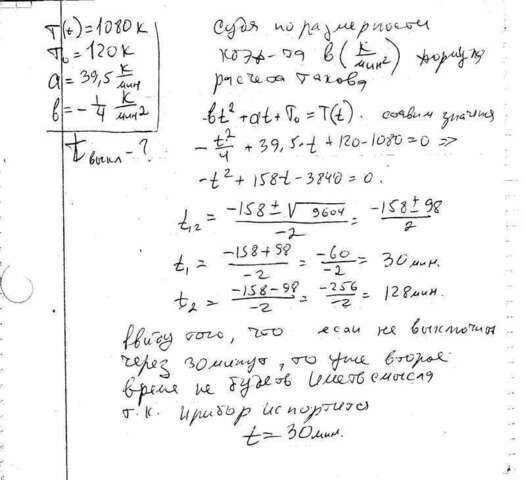 T(t) = 1080 К
T₀ = 120 К
a = 39,5 К/мин
b = -1/4 К/мин²
tвыкл - ?
Судя по размерности
коэф-та b (К/мин²) формула
расчета такова
bt² + at + T₀ = T(t). значения
-t²/4 + 39,5·t + 120 - 1080 = 0 =>
-t² + 158t - 3840 = 0.
t₁,₂ = (-158 ± √9604)/-2 = (-158 ± 98)/2
t₁ = (-158 + 98)/-2 = -60/-2 = 30 мин.
t₂ = (-158 - 98)/-2 = -256/-2 = 128 мин.
Ввиду того, что если не выключить
через 30 минут, то уже второе
время не будет иметь смысла
т.к. прибор испортится
t = 30 мин.